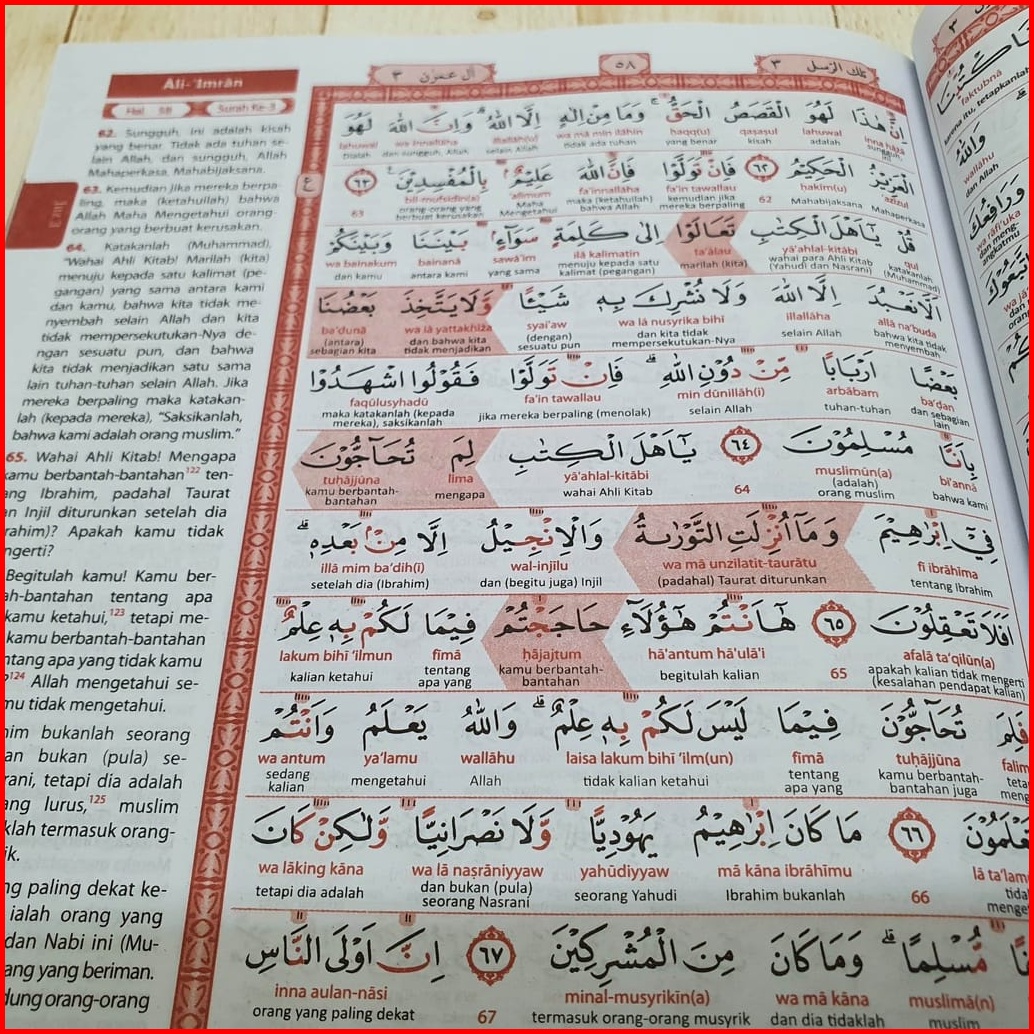 Ali-'Imrān
Hal 58 Surah Ke-3
62. Sungguh, ini adalah kisah
yang benar. Tidak ada tuhan se-
lain Allah, dan sungguh, Allah
Mahaperkasa, Mahabijaksana.
63. Kemudian jika mereka berpa-
ling, maka (ketahuilah) bahwa
Allah Maha Mengetahui orang-
orang yang berbuat kerusakan.
64. Katakanlah (Muhammad),
"Wahai Ahli Kitab! Marilah (kita)
menuju kepada satu kalimat (pe-
gangan) yang sama antara kami
dan kamu, bahwa kita tidak me-
nyembah selain Allah dan kita
tidak mempersekutukan-Nya de-
ngan sesuatu pun, dan bahwa
kita tidak menjadikan satu sama
lain tuhan-tuhan selain Allah. Jika
mereka berpaling maka katakan-
lah (kepada mereka), "Saksikanlah,
bahwa kami adalah orang muslim."
65. Wahai Ahli Kitab! Mengapa
kamu berbantah-bantahan122 ten-
ang Ibrahim, padahal Taurat
an Injil diturunkan setelah dia
rahim)? Apakah kamu tidak
ngerti?
Begitulah kamu! Kamu ber-
ah-bantahan tentang apa
kamu ketahui,123 tetapi me-
kamu berbantah-bantahan
ntang apa yang tidak kamu
124 Allah mengetahui se-
mu tidak mengetahui.
him bukanlah seorang
an bukan (pula) se-
rani, tetapi dia adalah
ang lurus,125 muslim
klah termasuk orang-
ik.
ng paling dekat ke-
ialah orang yang
dan Nabi ini (Mu-
ang yang beriman.
dung orang-orang
تلك الرسل ٣ ٥٨ آل عمرٰن ٣
اِنَّ هٰذَا لَهُوَ الْقَصَصُ الْحَقُّ ۚ وَمَا مِنْ اِلٰهٍ اِلَّا اللّٰهُ ۗ وَاِنَّ اللّٰهَ لَهُوَ
inna hāżā lahuwal qaṣaṣul ḥaqq(u) wa mā min ilāhin illallāh(u) wa innallāha lahuwal
sungguh, ini adalah kisah yang benar tidak ada tuhan selain Allah dan sungguh, Allah Dialah
الْعَزِيْزُ الْحَكِيْمُ ٦٢ فَاِنْ تَوَلَّوْا فَاِنَّ اللّٰهَ عَلِيْمٌ ۢ بِالْمُفْسِدِيْنَ ࣖ ٦٣
ḥakīm(u) fa'in tawallau fa'innallāha 'alīmum bil-mufsidīn(a)
Mahaperkasa Mahabijaksana 62 kemudian jika mereka berpaling maka (ketahuilah) bahwa Allah Maha Mengetahui orang-orang yang berbuat kerusakan 63
قُلْ يٰٓاَهْلَ الْكِتٰبِ تَعَالَوْا اِلٰى كَلِمَةٍ سَوَاۤءٍ ۢ بَيْنَنَا وَبَيْنَكُمْ
qul yā'ahlal-kitābi ta'ālau ilā kalimatin sawā'im bainanā wa bainakum
katakanlah (Muhammad) wahai para Ahli Kitab (Yahudi dan Nasrani) marilah (kita) menuju kepada satu kalimat (pegangan) yang sama antara kami dan kamu
اَلَّا نَعْبُدَ اِلَّا اللّٰهَ وَلَا نُشْرِكَ بِهٖ شَيْـًٔا وَّلَا يَتَّخِذَ بَعْضُنَا
allā na'buda illallāha wa lā nusyrika bihī syai'aw wa lā yattakhiża ba'ḍunā
bahwa kita tidak menyembah selain Allah dan kita tidak mempersekutukan-Nya (dengan) sesuatu pun dan bahwa kita tidak menjadikan (antara) sebagian kita
بَعْضًا اَرْبَابًا مِّنْ دُوْنِ اللّٰهِ ۗ فَاِنْ تَوَلَّوْا فَقُوْلُوا اشْهَدُوْا
ba'ḍan arbābam min dūnillāh(i) fa'in tawallau faqūlusyhadū
dan sebagian lain tuhan-tuhan selain Allah jika mereka berpaling (menolak) maka katakanlah (kepada mereka), saksikanlah
بِاَنَّا مُسْلِمُوْنَ ٦٤ يٰٓاَهْلَ الْكِتٰبِ لِمَ تُحَاۤجُّوْنَ
bi'annā muslimūn(a) yā'ahlal-kitābi lima tuḥājjūna
bahwa kami (adalah) orang muslim 64 wahai Ahli Kitab mengapa kamu berbantah-bantahan
فِيْٓ اِبْرٰهِيْمَ وَمَآ اُنْزِلَتِ التَّوْرٰىةُ وَالْاِنْجِيْلُ اِلَّا مِنْۢ بَعْدِهٖ ۗ
fī ibrāhīma wa mā unzilatit-taurātu wal-injīlu illā mim ba'dih(ī)
tentang Ibrahim (padahal) Taurat diturunkan dan (begitu juga) Injil setelah dia (Ibrahim)
اَفَلَا تَعْقِلُوْنَ ٦٥ هٰٓاَنْتُمْ هٰٓؤُلَاۤءِ حَاجَجْتُمْ فِيْمَا لَكُمْ بِهٖ عِلْمٌ
afalā ta'qilūn(a) hā'antum hā'ulā'i ḥājajtum fīmā lakum bihī 'ilmun
apakah kalian tidak mengerti (kesalahan pendapat kalian) 65 begitulah kalian kamu berbantah-bantahan tentang apa yang kalian ketahui
فَلِمَ تُحَاۤجُّوْنَ فِيْمَا لَيْسَ لَكُمْ بِهٖ عِلْمٌ ۗ وَاللّٰهُ يَعْلَمُ وَاَنْتُمْ
falim tuḥājjūna fīmā laisa lakum bihī 'ilm(un) wallāhu ya'lamu wa antum
kamu berbantah-bantahan juga tentang apa yang tidak kalian ketahui Allah mengetahui sedang kalian
عْلَمُوْنَ ٦٦ مَا كَانَ اِبْرٰهِيْمُ يَهُوْدِيًّا وَّلَا نَصْرَانِيًّا وَّلٰكِنْ كَانَ
lā ta'lam mā kāna ibrāhīmu yahūdiyyaw wa lā naṣrāniyyaw wa lāking kāna
66 Ibrahim bukanlah seorang Yahudi dan bukan (pula) seorang Nasrani tetapi dia adalah
مُّسْلِمًا ۗ وَمَا كَانَ مِنَ الْمُشْرِكِيْنَ ٦٧ اِنَّ اَوْلَى النَّاسِ
muslimā(n) wa mā kāna minal-musyrikīn(a) inna aulan-nāsi
muslim dan dia tidaklah termasuk orang-orang musyrik 67 orang yang paling dekat